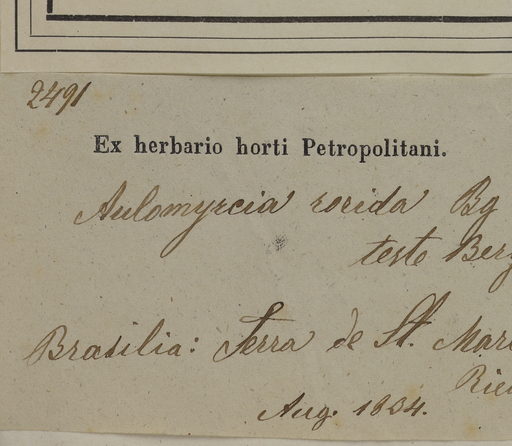 2491
Ex herbario horti Petropolitani.
Aulomyrcia rorida Bg
teste Berg
Brasilia: Serra de St. Mar
Rie
Aug. 1834.